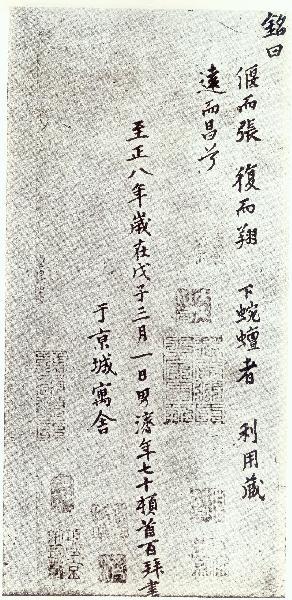 銘曰
偃而張 復而翔 下蜿蟺者 利用藏
遠而昌兮
至正八年歲在戊子三月一日男年七十頓首百拜書
于京城寓舍